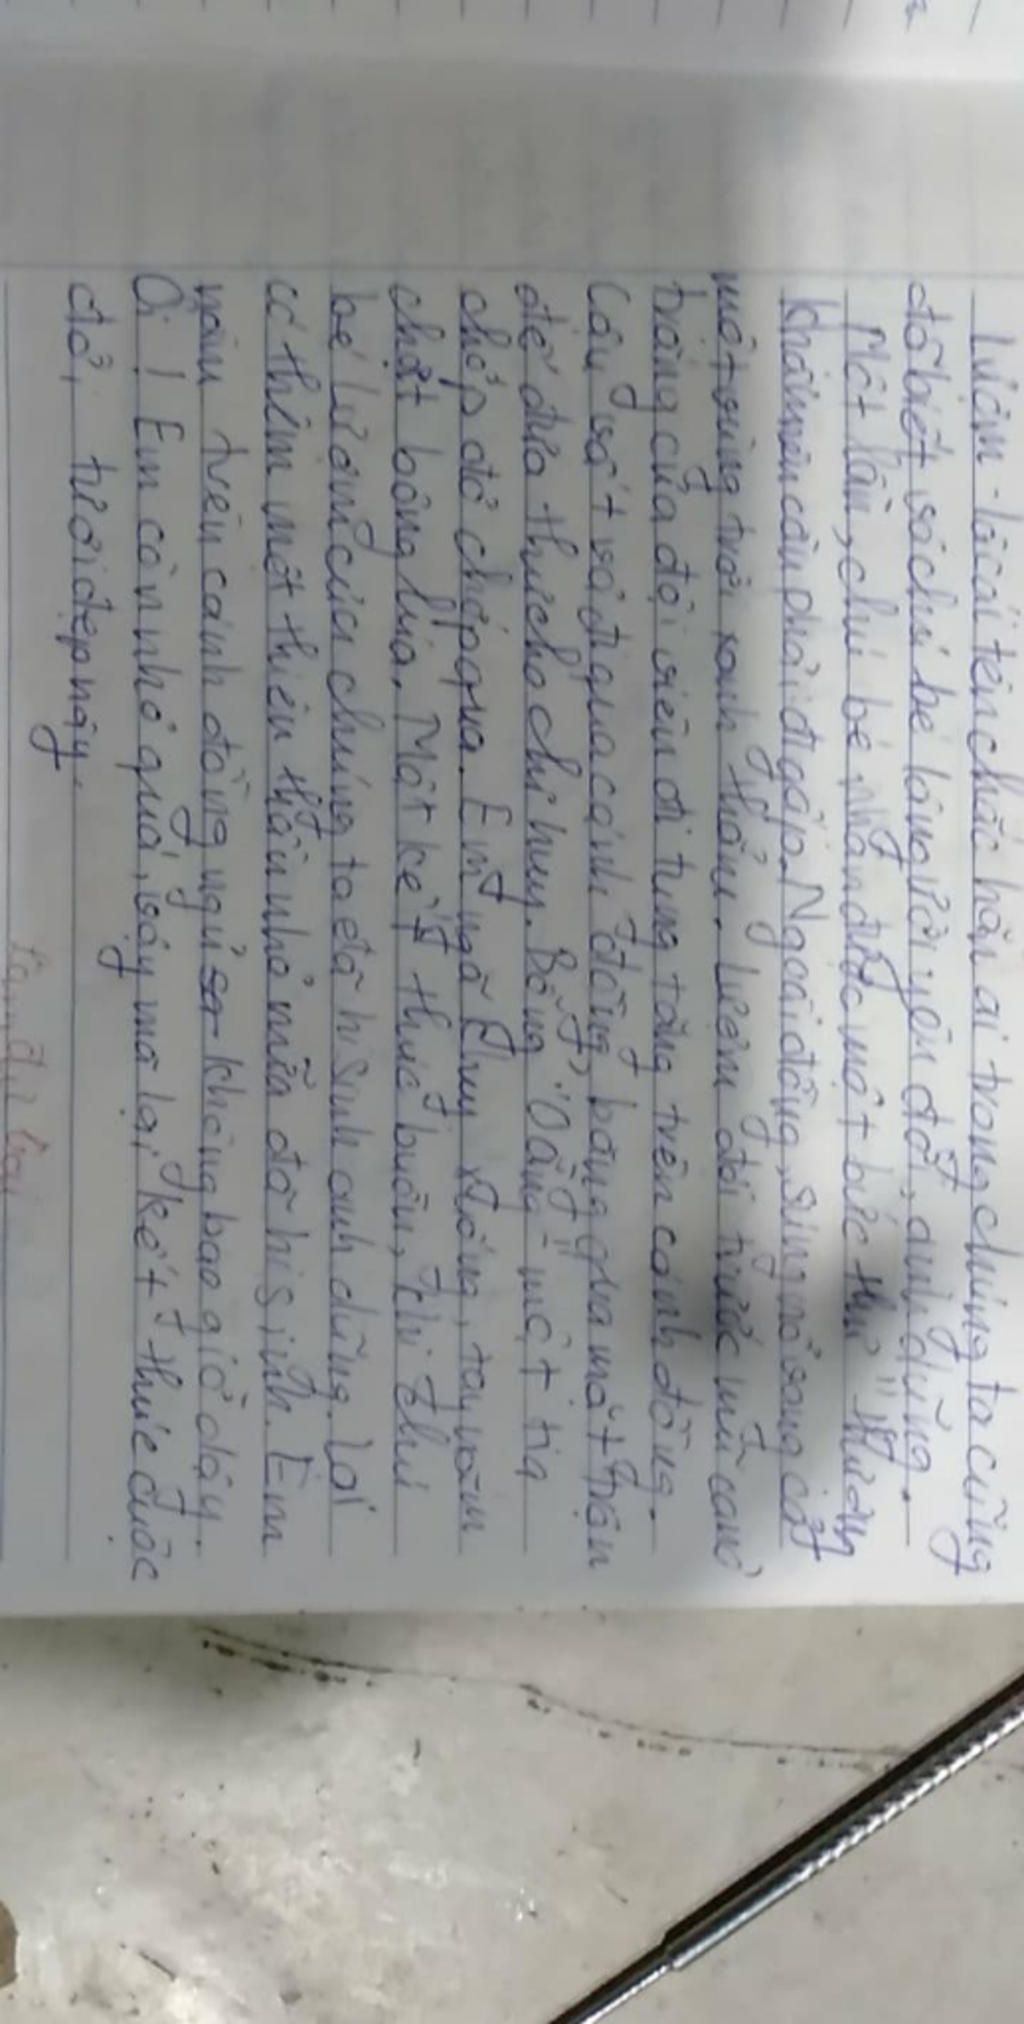 Lượm - là cái tên chắc hẳn ai trong chúng ta cũng
đã biết về chú bé lâng người yêu đời, anh dũng.
Một lần, chú bé nhận được một bức thư "thượng
khẩn nên cần phải đi gấp. Ngoài đồng, súng nổ vang cắt
một vùng trời xanh thẳm. Lượm đội trước mũ canô
trắng của đội siêu đi tung tăng trên cánh đồng.
Cậu vớt vả đi qua cánh đồng, băng qua mặt trận
để đưa thư cho chỉ huy. Bỗng, "Oằng" một tia
chớp đỏ chép qua. Em ngã xuống, tay nắm
chặt bông lúa. Một kết thúc buồn, khi
bé Lượm của chúng ta đã hi sinh anh dũng. Lại
có thêm một thiên thần nhỏ nữa đã hi sinh. Em
nằm trên cánh đồng ngủ không bao giờ dậy.
Ôi! Em còn nhỏ quá, vậy mà lại kết thúc cuộc
đời, tươi đẹp này.